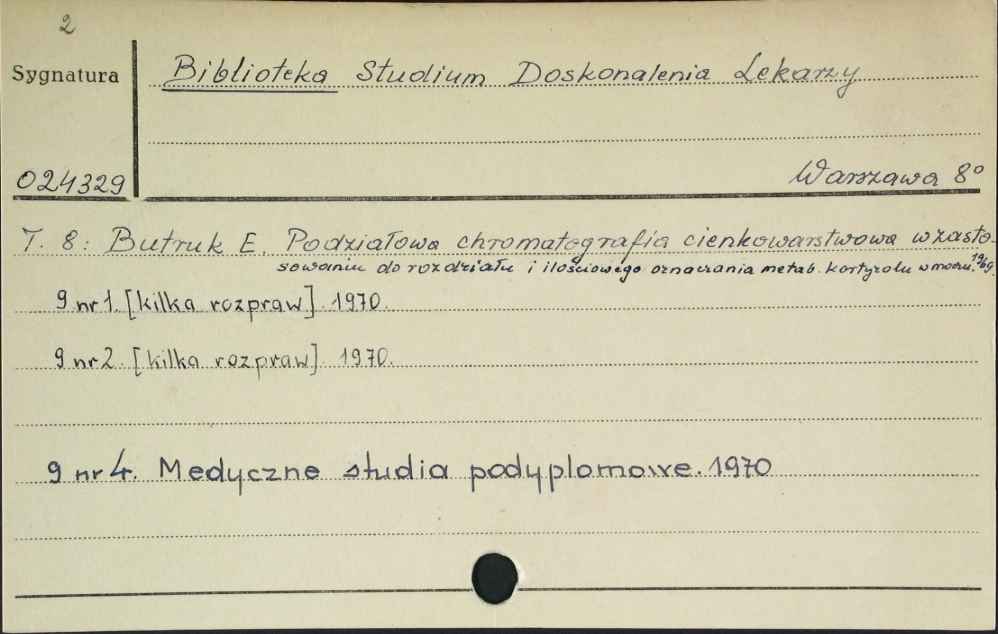 2
Sygnatura
Biblioteka Studium Doskonalenia Lekarzy
024329
Warszawa 8°
T. 8: Butruk E. Podziałowa chromatografia cienkowarstwowa w zasto-
sowaniu do rozdziału i ilościowego oznaczania metab. kortyzolu w moczu. 1969.
9 nr 1. [kilka rozpraw]. 1970.
9 nr 2. [kilka rozpraw]. 1970.
9 nr 4. Medyczne studia podyplomowe. 1970